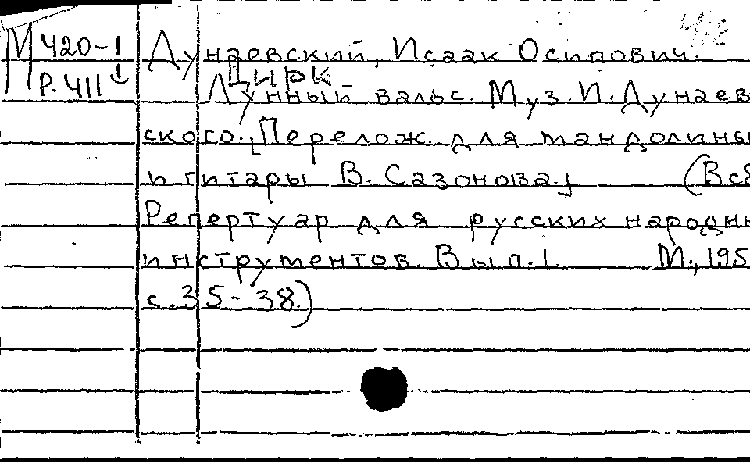 М 420-1 Дунаевский, Исаак Осипович.
Р. 411 Цирк
Лунный вальс. Муз. И. Дунаев
ского. [Перелож. для мандолины
и гитары В. Сазонова]
Репертуар для русских народн
инструментов. Вып. 1. М., 195
с. 35-38.)